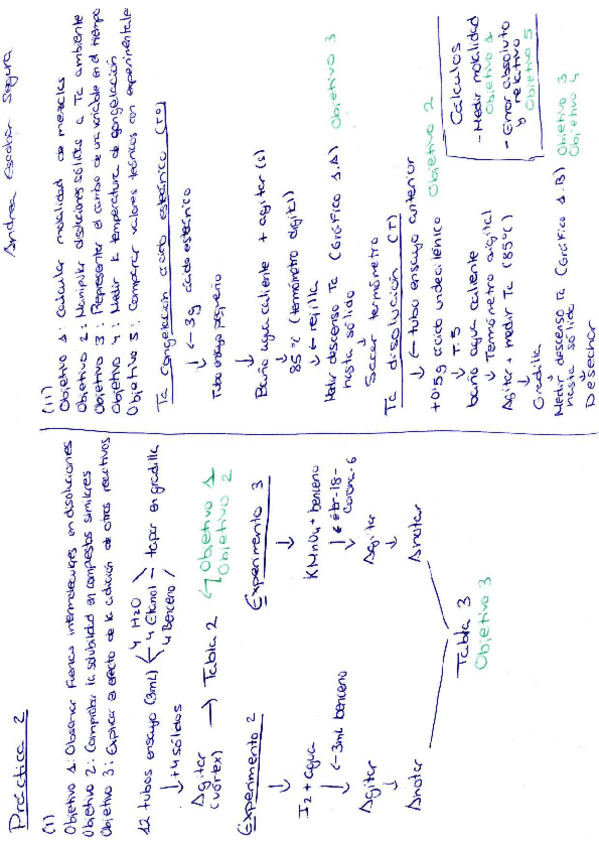 Práctica 2
Andrea Escobar Segura
(I)
Objetivo 1: Observar fuerzas intermoleculares en disoluciones
Objetivo 2: Comprobar la solubilidad en compuestos similares
Objetivo 3: Explicar el efecto de la adición de otros reactivos
12 tubos ensayo (3mL)
4 H2O
4 Etanol - tapar en gradilla
4 Benceno
↓ +4 sólidos
Agitar
(vórtex)
→ Tabla 2
Objetivo 1
Objetivo 2
Experimento 2
↓
I2 + agua
↓ ← 3mL benceno
Agitar
↓
Anotar
Experimento 3
↓
KMnO4 + benceno
↓ ← éter-18-
corona-6
Agitar
↓
Anotar
Tabla 3
Objetivo 3
(II)
Objetivo 1: Calcular molalidad de mezclas
Objetivo 2: Manipular disoluciones sólidas a Tª ambiente
Objetivo 3: Representar el cambio de una variable en el tiempo
Objetivo 4: Medir la temperatura de congelación
Objetivo 5: Comparar valores teóricos con experimentales
Tª Congelación ácido esteárico (Tº)
↓ ← 3g ácido esteárico
Tubo ensayo pequeño
↓
Baño agua caliente + agitar (s)
↓
85ºC (termómetro digital)
↓ ← rejilla
Medir descenso Tª (Gráfico 1.A) Objetivo 3
hasta sólido
↓
Sacar termómetro
Tª disolución (T)
↓ ← tubo ensayo anterior
+0'5g ácido undecilénico Objetivo 2
↓ T.5
baño agua caliente
↓ Termómetro digital
Agitar + medir Tª (85ºC)
↓
Gradilla
↓
Medir descenso Tª (Gráfico 1.B) Objetivo 3
hasta sólido Objetivo 4
↓
Desechar
Cálculos
- Medir molalidad
Objetivo 1
- Error absoluto
y relativo
Objetivo 5